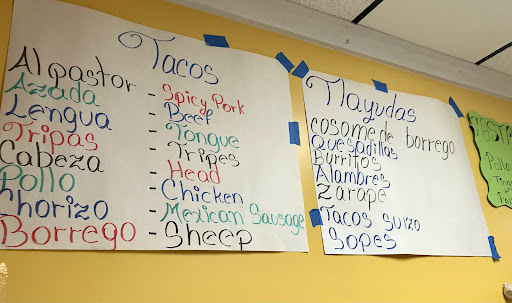 Tacos
Al pastor - Spicy Pork
Azada - Beef
Lengua - Tongue
Tripas - Tripes
Cabeza - Head
Pollo - Chicken
Chorizo - Mexican Sausage
Borrego - Sheep
Tlayudas
cosome de borrego
Quesadillas
Burritos
Alambres
Zarape
Tacos suizo
Sopes
Pollo